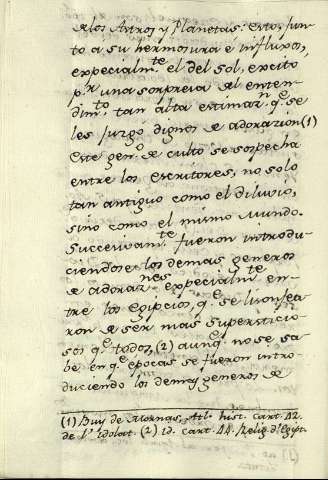 de los Astros y Planetas: esto, jun-
to a su hermosura e influxos,
expecialm.te el del sol, excito
p.r una sorpresa del enten-
dim.to, tan alta estimaz.n q.e se
les juzgó dignos de adorazion (1)
este gen.o de culto se sospecha
entre los escritores, no solo
tan antiguo como el diluvio,
sino como el mismo Mundo.
Succesivam.te fueron introdu-
ciendose los demas generos
de adoraz.nes expecialm.te en-
tre los egipcios, q.e se lisonjea-
ron de ser mas supersticio-
sos q.e todos, (2) aunq.e no se sa-
be en q.e epocas se fueron intro-
duciendo los demas generos de
(1) Buy de Mornas, Atl. hist. cart. 42.
de l'Idolat. (2) id. cart. 44. Relig. d'Egipt.